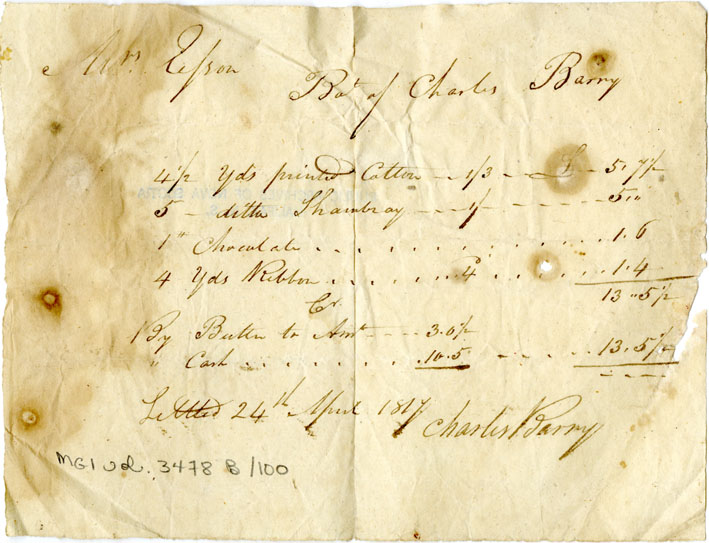 Mrs. Eʃson
Bot. of Charles Barry
4 1/2 Yds printed Cotton - - 1/3 - - £ - 5.. 7 1/2
5 - ditto Shambray - - - 1/ - - - - - 5..
1 lb Chocolate . . . . . . . . . . . 1. 6
4 Yds Ribbon . . . . . . 4d . . . . . 1. 4
13 .. 5 1/2
Cr.
By Butter to Amt - - - 3. 0 1/2
" Cash . . . . . . . 10. 5 - . . . . 13. 5 1/2
Settled 24th April 1817
Charles Barry
MG1 vol. 3478 B/100